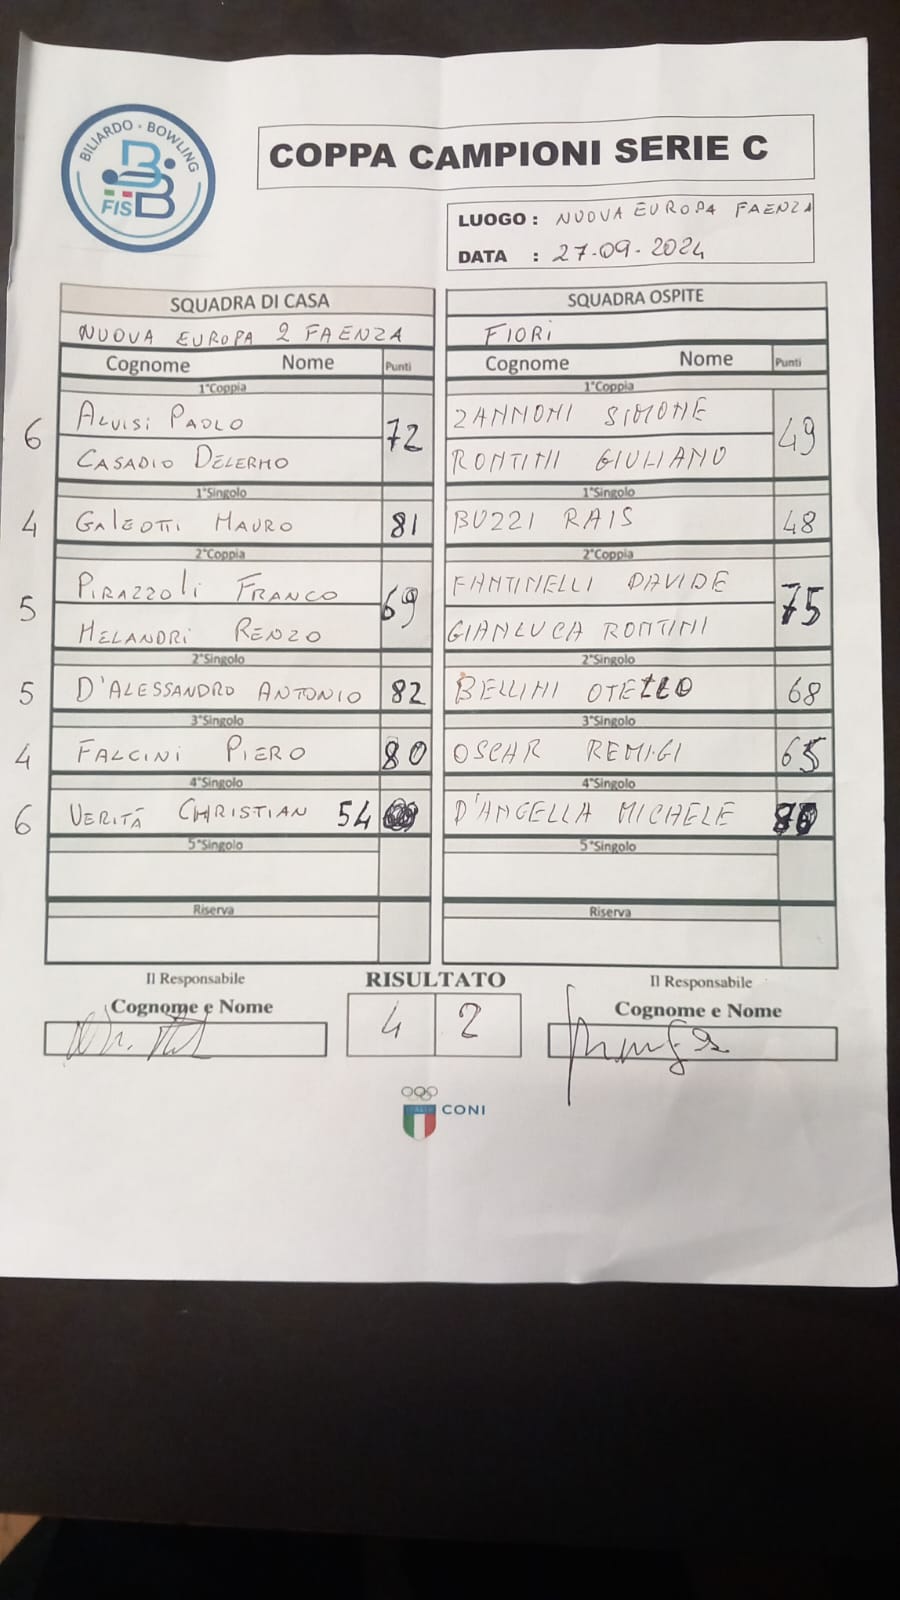 BILIARDO - BOWLING
FISBB
COPPA CAMPIONI SERIE C
LUOGO : NUOVA EUROPA FAENZA
DATA : 27-09-2024
SQUADRA DI CASA
NUOVA EUROPA 2 FAENZA
Cognome Nome Punti
1°Coppia
6 ALVISI PAOLO 72
CASADIO DELERMO
1°Singolo
4 GALEOTTI MAURO 81
2°Coppia
5 PIRAZZOLI FRANCO 69
MELANDRI RENZO
2°Singolo
5 D'ALESSANDRO ANTONIO 82
3°Singolo
4 FALCINI PIERO 80
4°Singolo
6 VERITÀ CHRISTIAN 54
5°Singolo
Riserva
SQUADRA OSPITE
FIORI
Cognome Nome Punti
1°Coppia
ZANNONI SIMONE 49
RONTINI GIULIANO
1°Singolo
BUZZI RAIS 48
2°Coppia
FANTINELLI DAVIDE 75
GIANLUCA RONTINI
2°Singolo
BELLINI OTELLO 68
3°Singolo
OSCAR REMIGI 65
4°Singolo
D'ANGELLA MICHELE
5°Singolo
Riserva
Il Responsabile
Cognome e Nome
RISULTATO
4 2
Il Responsabile
Cognome e Nome
ITALIA
CONI